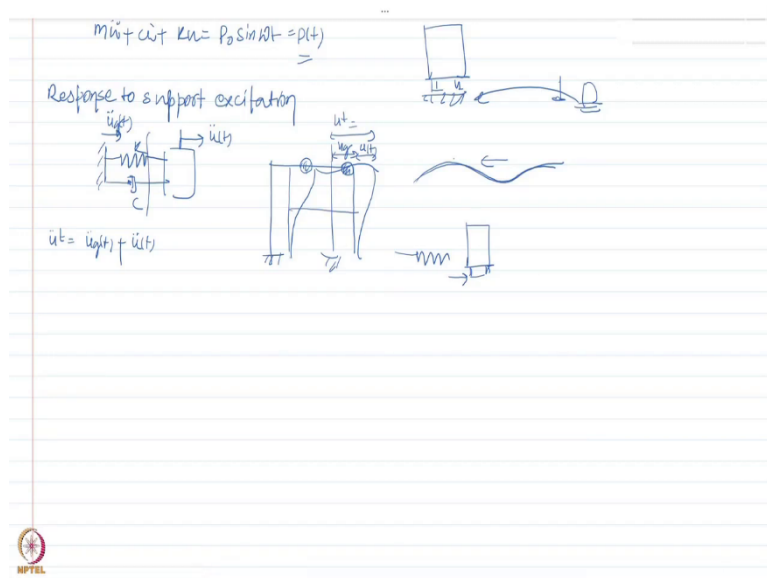 mü+ cu̇+ ku= P₀ sinωt =p(t)
Response to support excitation
üg(t)
ü(t)
k
c
uᵗ=
ug
u(t)
üᵗ= üg(t) + ü(t)
NPTEL